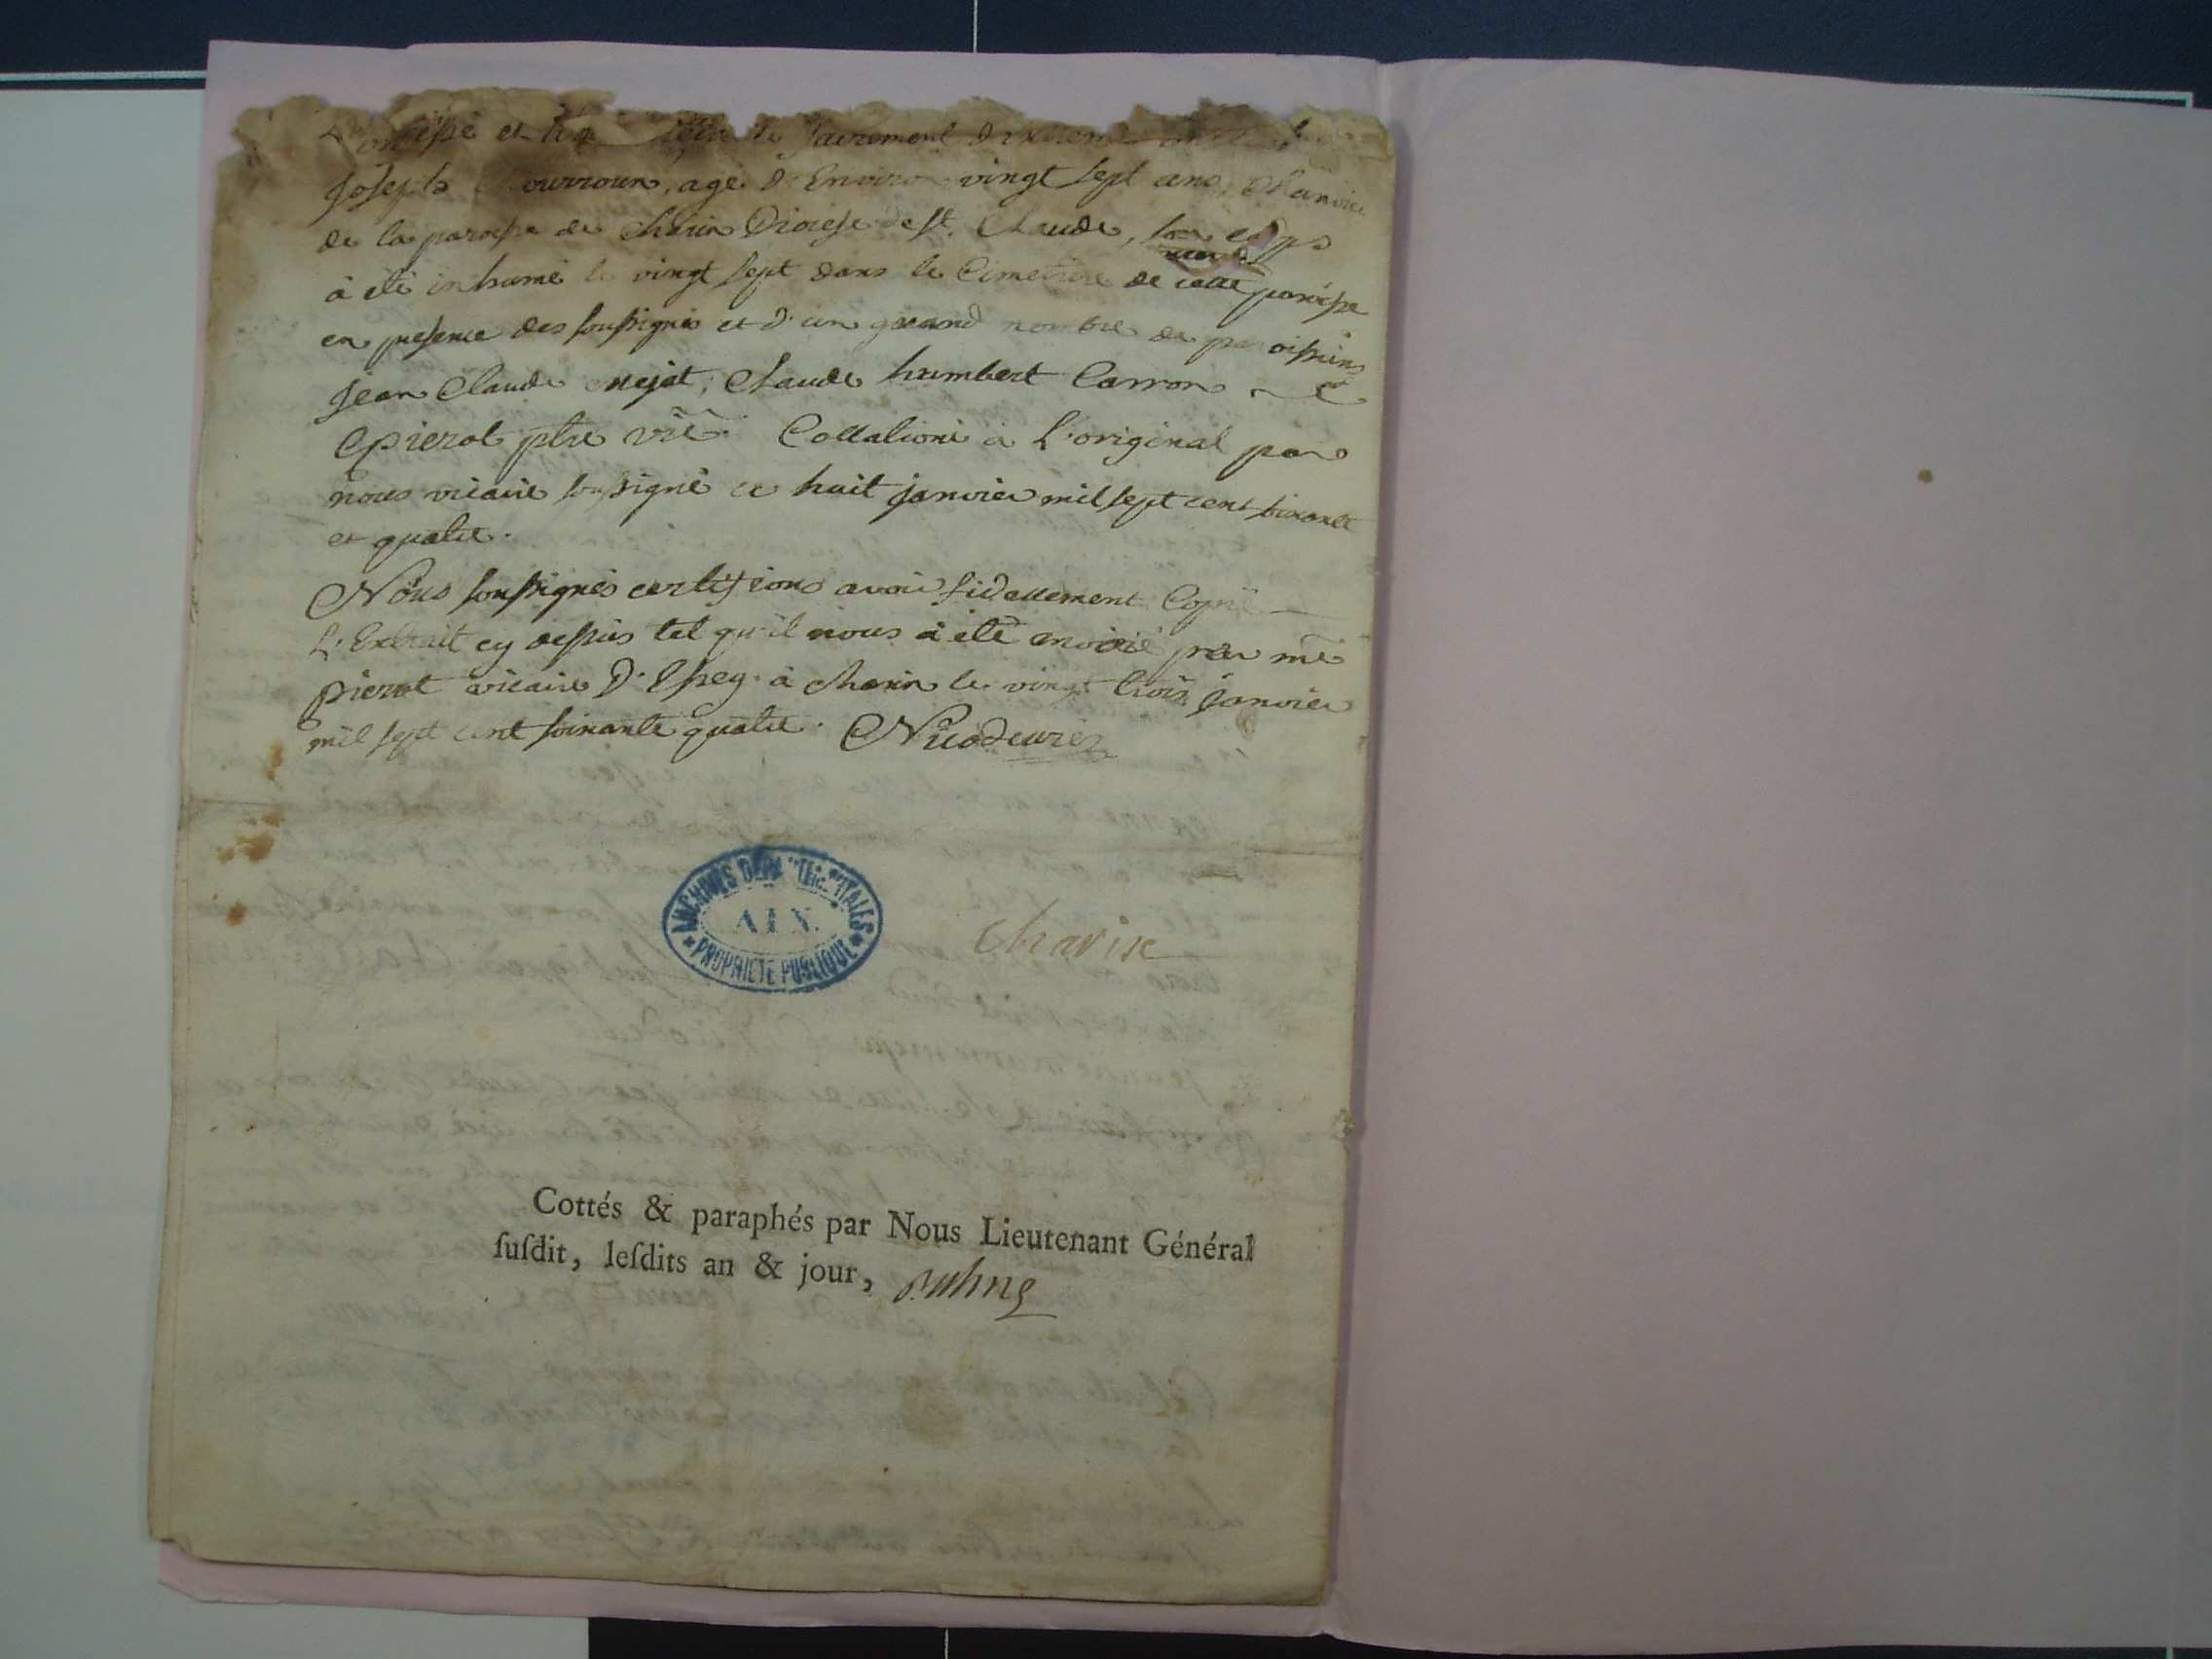 et reçu le sacrement d'extreme
Joseph ourroun, agé d'Environ vingt sept ans, Chanvrier
de la paroisse de Charix Diocese de st. Claude, son corps
à été inhumé le vingt sept dans le Cimetiere de cette paroisse
en presence des soussignés et d'un grand nombre de paroissiens
Jean Claude mejat, Claude humbert Carron et
pierot ptre vic̃ Collationé à L'original par
nous vicaire soussigné ce huit janvier mil sept cent soixante
et quatre.
Nous soussignés certifions avoir fidellement Copié
L'Extrait cy dessus tel qu'il nous à été envoié par mr̃e
pierot vicaire D' à Charix le vingt trois janvier
mil sept cent soixante quatre. Nicod curé
ARCHIVES DEPARTEMENTALES
AIN.
* PROPRIETE PUBLIQUE *
Charix
Cottés & paraphés par Nous Lieutenant Général
ſuſdit, leſdits an & jour,